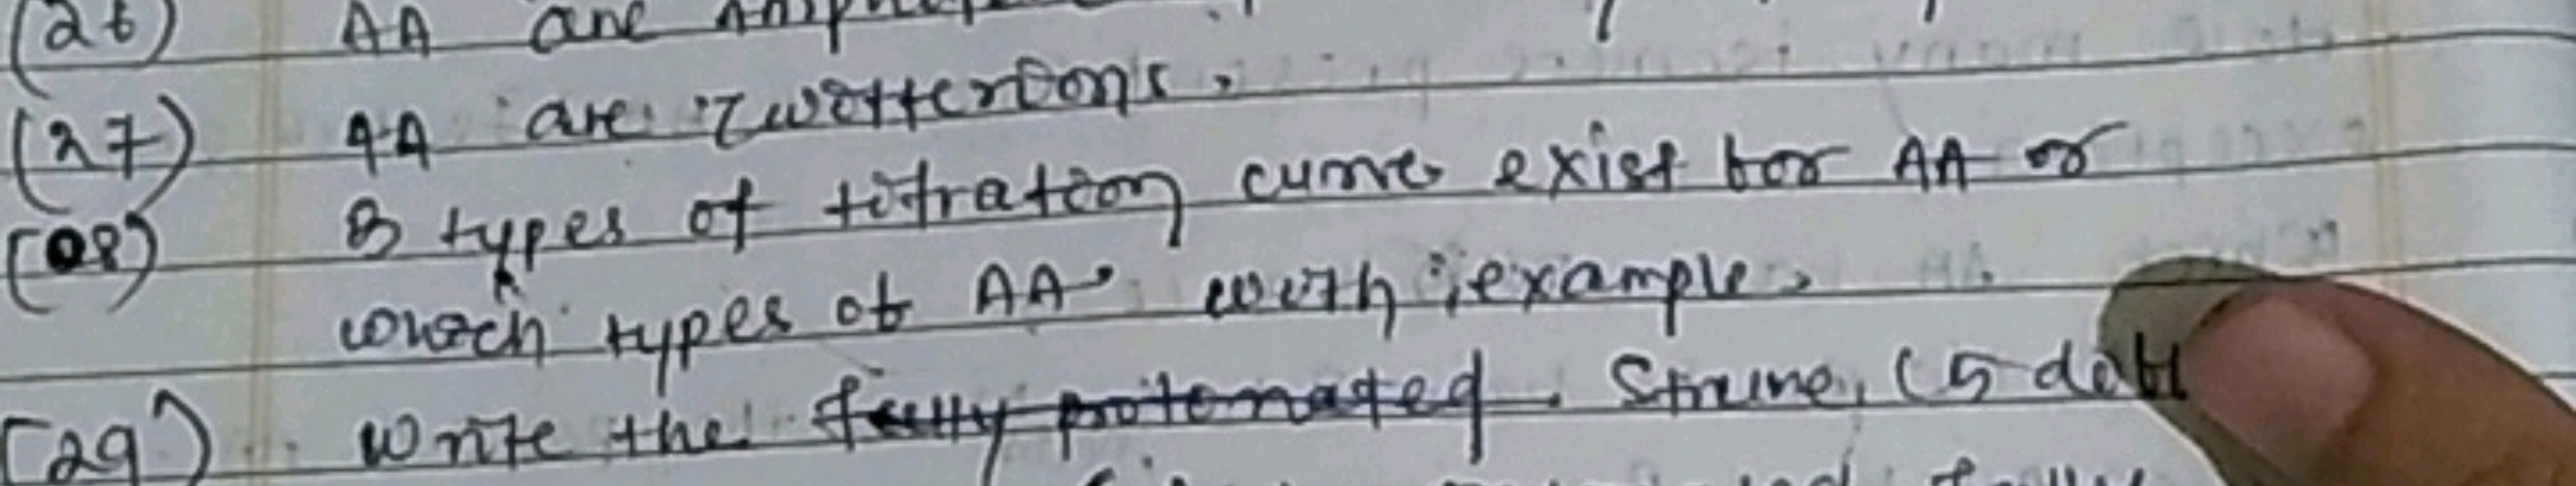 (26) AA are
(27) AA are zwitterions.
(28) 3 types of titration curve exist for AA or
which types of AA with example.
(29) Write the fully protonated. Strune, (5 diff